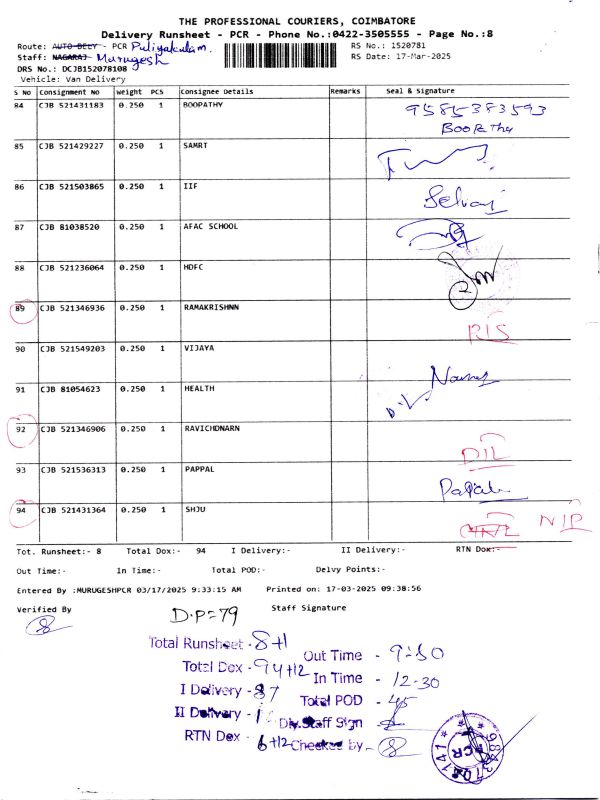 THE PROFESSIONAL COURIERS, COIMBATORE
Delivery Runsheet - PCR - Phone No.:0422-3505555 - Page No.:8
Route: AUTO DELY - PCR Puliyakulam
RS No.: 1520781
Staff: NAGARAJ- Murugesh
RS Date: 17-Mar-2025
DRS No.: DCJB152078108
Vehicle: Van Delivery
S No Consignment No Weight PCS Consignee Details Remarks Seal & Signature
84 CJB 521431183 0.250 1 BOOPATHY 9585383593
Boopathy
85 CJB 521429227 0.250 1 SAMRT
86 CJB 521503865 0.250 1 IIF Selvaj
87 CJB 81038520 0.250 1 AFAC SCHOOL
88 CJB 521236064 0.250 1 HDFC
89 CJB 521346936 0.250 1 RAMAKRISHNN RIS
90 CJB 521549203 0.250 1 VIJAYA
91 CJB 81054623 0.250 1 HEALTH
92 CJB 521346906 0.250 1 RAVICHDNARN DIL
93 CJB 521536313 0.250 1 PAPPAL
94 CJB 521431364 0.250 1 SHJU NIP
Tot. Runsheet:- 8 Total Dox:- 94 I Delivery:- II Delivery:- RTN Dox:-
Out Time:- In Time:- Total POD:- Delvy Points:-
Entered By :MURUGESHPCR 03/17/2025 9:33:15 AM Printed on: 17-03-2025 09:38:56
Verified By D.P=79 Staff Signature
Total Runsheet - 8+1
Out Time - 9:50
Total Dox - 94+12
In Time - 12-30
I Delivery - 87
Total POD - 45
II Delivery - 1
Div.Staff Sign
RTN Dox - 6+12
Checked by - 8
PCR